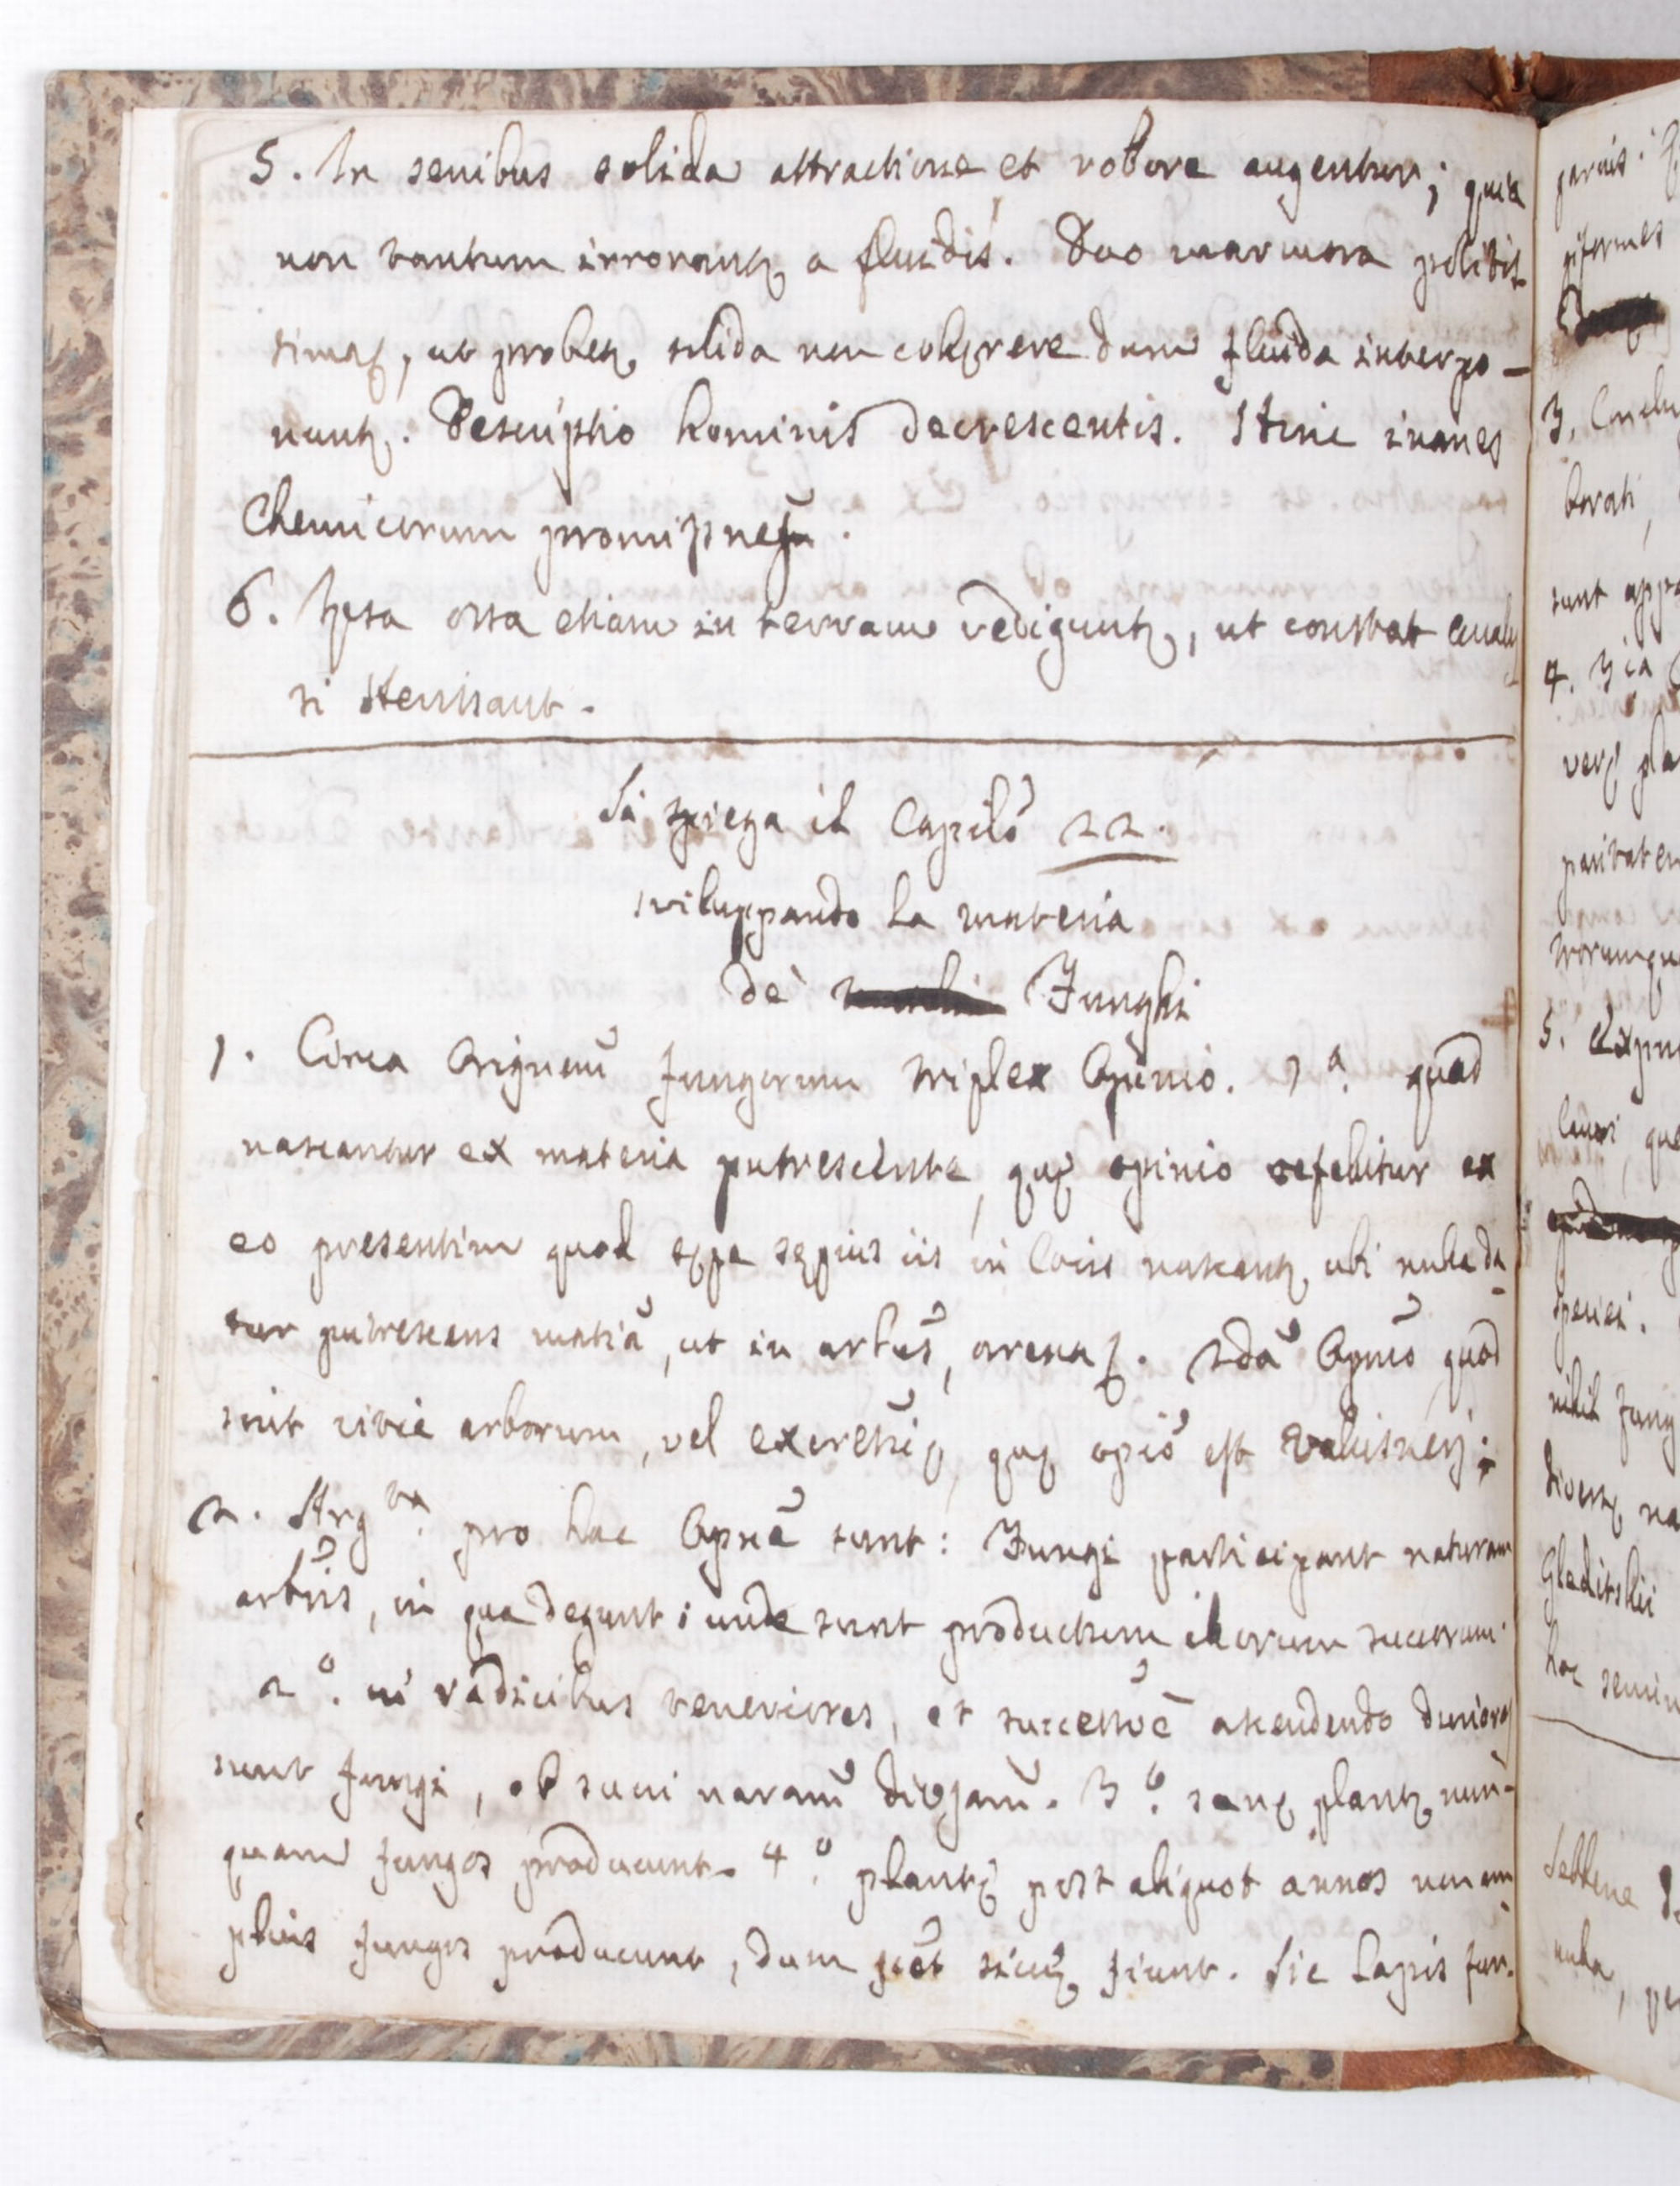 5. In senibus solida attractione et robore augentur; quia
non tantum irrorantꝫ a fluidis. Duo marmora politis
simaę, ut probetꝫ solida non cohęrere dum fluida interpo-
nuntꝫ. Descriptio hominis decrescentis. Hinc inanes
Chemicorum
6. Ipsa ossa etiam in terram rediguntꝫ, ut constat
si Herissant.
Si spiega il Capilõ 22.
sviluppando la materia
de' Funghi
1. Circa Originem̃ fungorum triplex Opinio. 1ª. quod
nascantur ex materia putrescente, quę opinio refellitur ex
eo presertim quod sępe sępius iis in locis nascantꝫ ubi nulla da
tur putrescens matiã, ut in arbũs, arenaę. 2dã Opniõ quod
sint vitia arborum, vel excretiõ, quę opiõ est Valisnerj;
2. Argta. pro hac Opnẽ sunt: Fungi participant naturam
arbris̃, in qua degunt; unde sunt productum illorum succorum.
2º. in radicibus teneriores, et successivẽ ascendendo duriores
sunt fungi, ob succi naram̃ diversam̃. 3º. sanę plantę nun-
quam fungos producunt. 4º. plantę post aliquot annos non am
plius fungos producunt, dum siccę fiunt. Sic Lapis fun.
parvis.
piformes
3. Conclu
borati,
sunt appa
4. 
verę pla
paritatem
trorumque
5. Expe
speciei.
nihil fung
diversę na
Gleditshii
hoc semin
Sebbene
nulla,